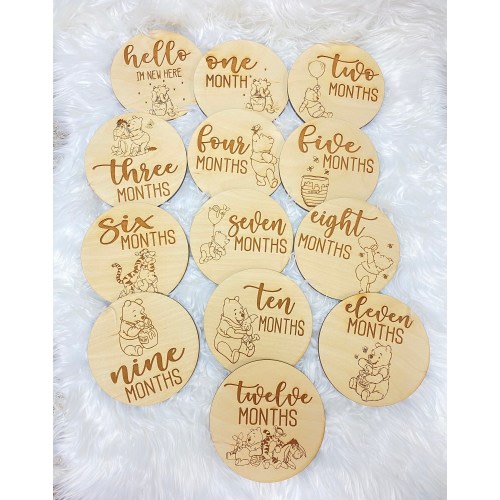 hello
I'M NEW HERE
one
MONTH
two
MONTHS
three
MONTHS
four
MONTHS
five
MONTHS
six
MONTHS
seven
MONTHS
eight
MONTHS
nine
MONTHS
ten
MONTHS
eleven
MONTHS
twelve
MONTHS